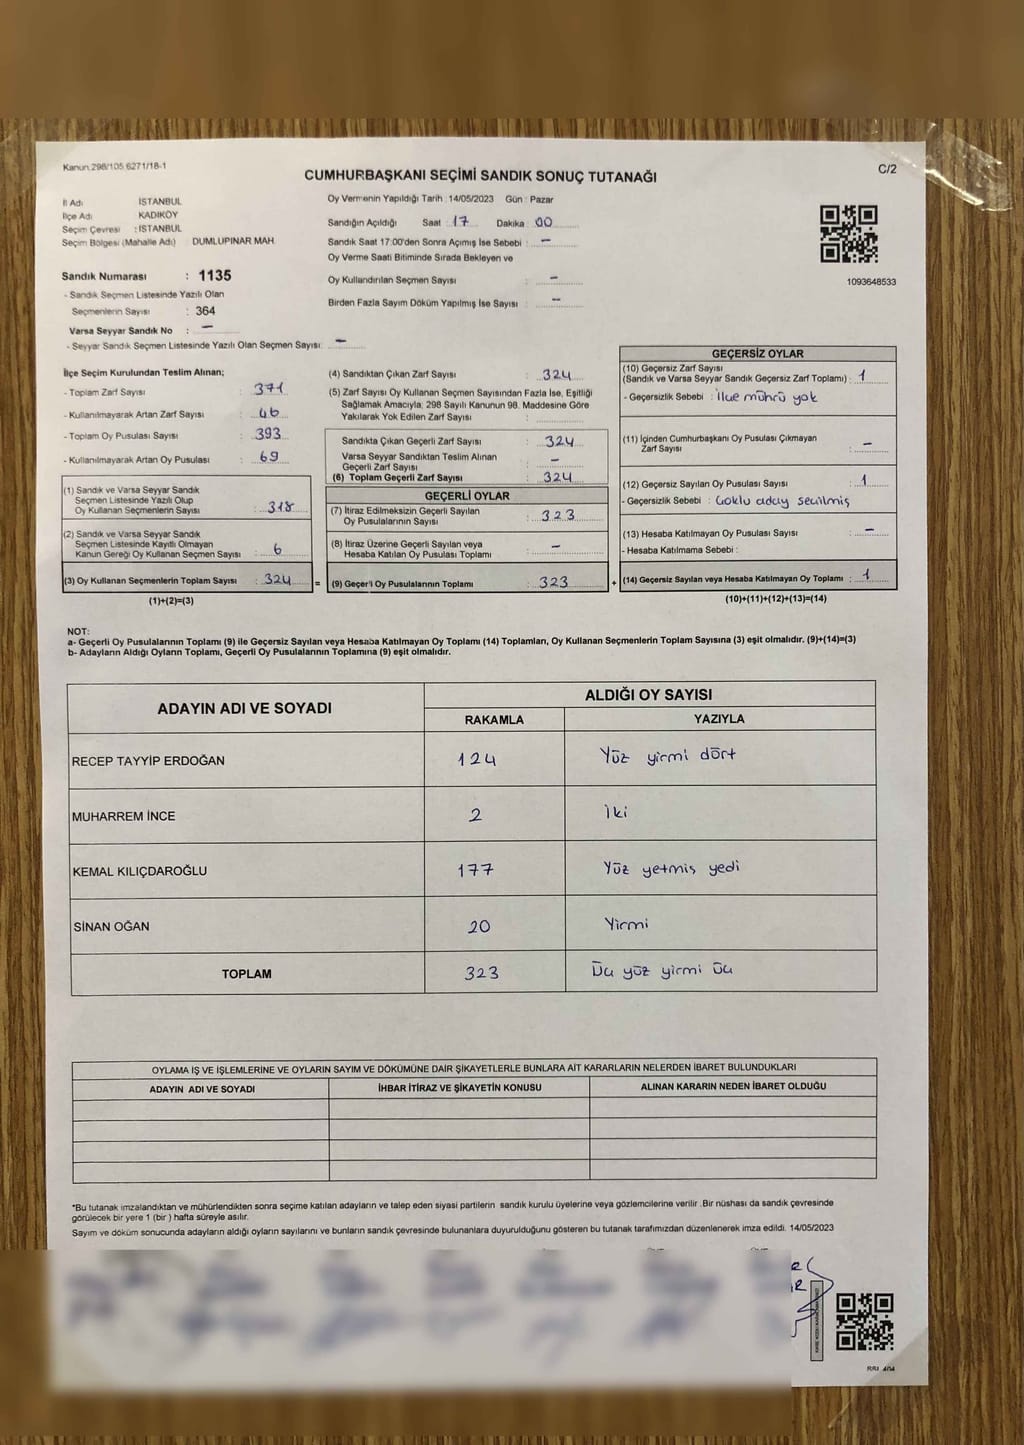 Kanun 298/105 6271/18-1
CUMHURBAŞKANI SEÇİMİ SANDIK SONUÇ TUTANAĞI
C/2
İl Adı İSTANBUL
İlçe Adı KADIKÖY
Seçim Çevresi : İSTANBUL
Seçim Bölgesi (Mahalle Adı) DUMLUPINAR MAH.
Sandık Numarası : 1135
- Sandık Seçmen Listesinde Yazılı Olan
Seçmenlerin Sayısı : 364
Varsa Seyyar Sandık No : –
- Seyyar Sandık Seçmen Listesinde Yazılı Olan Seçmen Sayısı: –
Oy Vermenin Yapıldığı Tarih : 14/05/2023 Gün : Pazar
Sandığın Açıldığı Saat : 17 Dakika : 00
Sandık Saat 17:00'den Sonra Açımış İse Sebebi : –
Oy Verme Saati Bitiminde Sırada Bekleyen ve
Oy Kullandırılan Seçmen Sayısı : –
Birden Fazla Sayım Döküm Yapılmış İse Sayısı : –
1093648533
İlçe Seçim Kurulundan Teslim Alınan;
- Toplam Zarf Sayısı : 371
- Kullanılmayarak Artan Zarf Sayısı : 46
- Toplam Oy Pusulası Sayısı : 393
- Kullanılmayarak Artan Oy Pusulası : 69
(1) Sandık ve Varsa Seyyar Sandık
Seçmen Listesinde Yazılı Olup
Oy Kullanan Seçmenlerin Sayısı : 318
(2) Sandık ve Varsa Seyyar Sandık
Seçmen Listesinde Kayıtlı Olmayan
Kanun Gereği Oy Kullanan Seçmen Sayısı : 6
(3) Oy Kullanan Seçmenlerin Toplam Sayısı : 324 =
(1)+(2)=(3)
(4) Sandıktan Çıkan Zarf Sayısı : 324
(5) Zarf Sayısı Oy Kullanan Seçmen Sayısından Fazla İse, Eşitliği
Sağlamak Amacıyla, 298 Sayılı Kanunun 98. Maddesine Göre
Yakılarak Yok Edilen Zarf Sayısı :
Sandıkta Çıkan Geçerli Zarf Sayısı : 324
Varsa Seyyar Sandıktan Teslim Alınan
Geçerli Zarf Sayısı : –
(6) Toplam Geçerli Zarf Sayısı : 324
GEÇERLİ OYLAR
(7) İtiraz Edilmeksizin Geçerli Sayılan
Oy Pusulalarının Sayısı : 323
(8) İtiraz Üzerine Geçerli Sayılan veya
Hesaba Katılan Oy Pusulası Toplamı : –
(9) Geçerli Oy Pusulalarının Toplamı : 323 +
GEÇERSİZ OYLAR
(10) Geçersiz Zarf Sayısı
(Sandık ve Varsa Seyyar Sandık Geçersiz Zarf Toplamı) : 1
- Geçersizlik Sebebi : ilçe mührü yok
(11) İçinden Cumhurbaşkanı Oy Pusulası Çıkmayan
Zarf Sayısı : –
(12) Geçersiz Sayılan Oy Pusulası Sayısı : 1
- Geçersizlik Sebebi : Çoklu aday seçilmiş
(13) Hesaba Katılmayan Oy Pusulası Sayısı : –
- Hesaba Katılmama Sebebi :
(14) Geçersiz Sayılan veya Hesaba Katılmayan Oy Toplamı : 1
(10)+(11)+(12)+(13)=(14)
NOT:
a- Geçerli Oy Pusulalarının Toplamı (9) ile Geçersiz Sayılan veya Hesaba Katılmayan Oy Toplamı (14) Toplamları, Oy Kullanan Seçmenlerin Toplam Sayısına (3) eşit olmalıdır. (9)+(14)=(3)
b- Adayların Aldığı Oyların Toplamı, Geçerli Oy Pusulalarının Toplamına (9) eşit olmalıdır.
ADAYIN ADI VE SOYADI
ALDIĞI OY SAYISI
RAKAMLA YAZIYLA
RECEP TAYYİP ERDOĞAN 124 Yüz yirmi dört
MUHARREM İNCE 2 İki
KEMAL KILIÇDAROĞLU 177 Yüz yetmiş yedi
SİNAN OĞAN 20 Yirmi
TOPLAM 323 Üç yüz yirmi üç
OYLAMA İŞ VE İŞLEMLERİNE VE OYLARIN SAYIM VE DÖKÜMÜNE DAİR ŞİKAYETLERLE BUNLARA AİT KARARLARIN NELERDEN İBARET BULUNDUKLARI
ADAYIN ADI VE SOYADI İHBAR İTİRAZ VE ŞİKAYETİN KONUSU ALINAN KARARIN NEDEN İBARET OLDUĞU
*Bu tutanak imzalandıktan ve mühürlendikten sonra seçime katılan adayların ve talep eden siyasi partilerin sandık kurulu üyelerine veya gözlemcilerine verilir. Bir nüshası da sandık çevresinde
görülecek bir yere 1 (bir) hafta süreyle asılır.
Sayım ve döküm sonucunda adayların aldığı oyların sayılarını ve bunların sandık çevresinde bulunanlara duyurulduğunu gösteren bu tutanak tarafımızdan düzenlenerek imza edildi. 14/05/2023